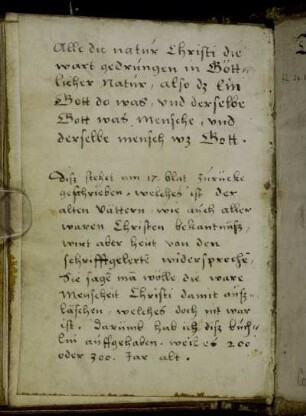 Alle die natur Christi die
wart gedrungen in Gött⸗
licher Natur, also dz Ein
Gott do was, vnd derselbe
Gott was Mensche, vnd
derselbe mensch wz Gott.
Disz stehet am 17. blat zurücke
geschrieben, welches ist der
alten Vättern, wie auch aller
waren Christen bekantnusz,
wirt aber heut von den
schrifftgelerte widersproche,
Sie sage mā wölle die ware
Menscheit Christi damit ausz⸗
läschen, welches doch nit war
ist. Darumb hab ich disz büch⸗
lin auffgehaben. weil es 200
oder 300. Jar alt.